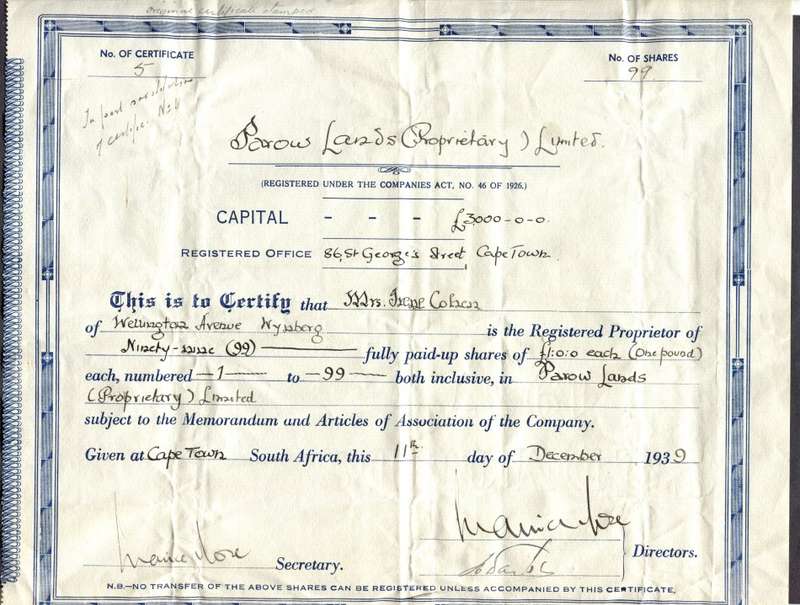 original certificate stamped
No. OF CERTIFICATE
5
No. OF SHARES
99
In part
of certific. No
Parow Lands (Proprietary) Limited.
(REGISTERED UNDER THE COMPANIES ACT, NO. 46 OF 1926,)
CAPITAL - - - £3000-0-0.
REGISTERED OFFICE 86, St George's Street Cape Town.
This is to Certify that Mrs. Irene Cohen
of Wellington Avenue Wynberg is the Registered Proprietor of
Ninety-nine (99) fully paid-up shares of £1:0:0 each (One pound)
each, numbered -1- to -99- both inclusive, in Parow Lands
(Proprietary) Limited
subject to the Memorandum and Articles of Association of the Company.
Given at Cape Town South Africa, this 11th day of December 1939
Secretary.
Directors.
N.B.—NO TRANSFER OF THE ABOVE SHARES CAN BE REGISTERED UNLESS ACCOMPANIED BY THIS CERTIFICATE.